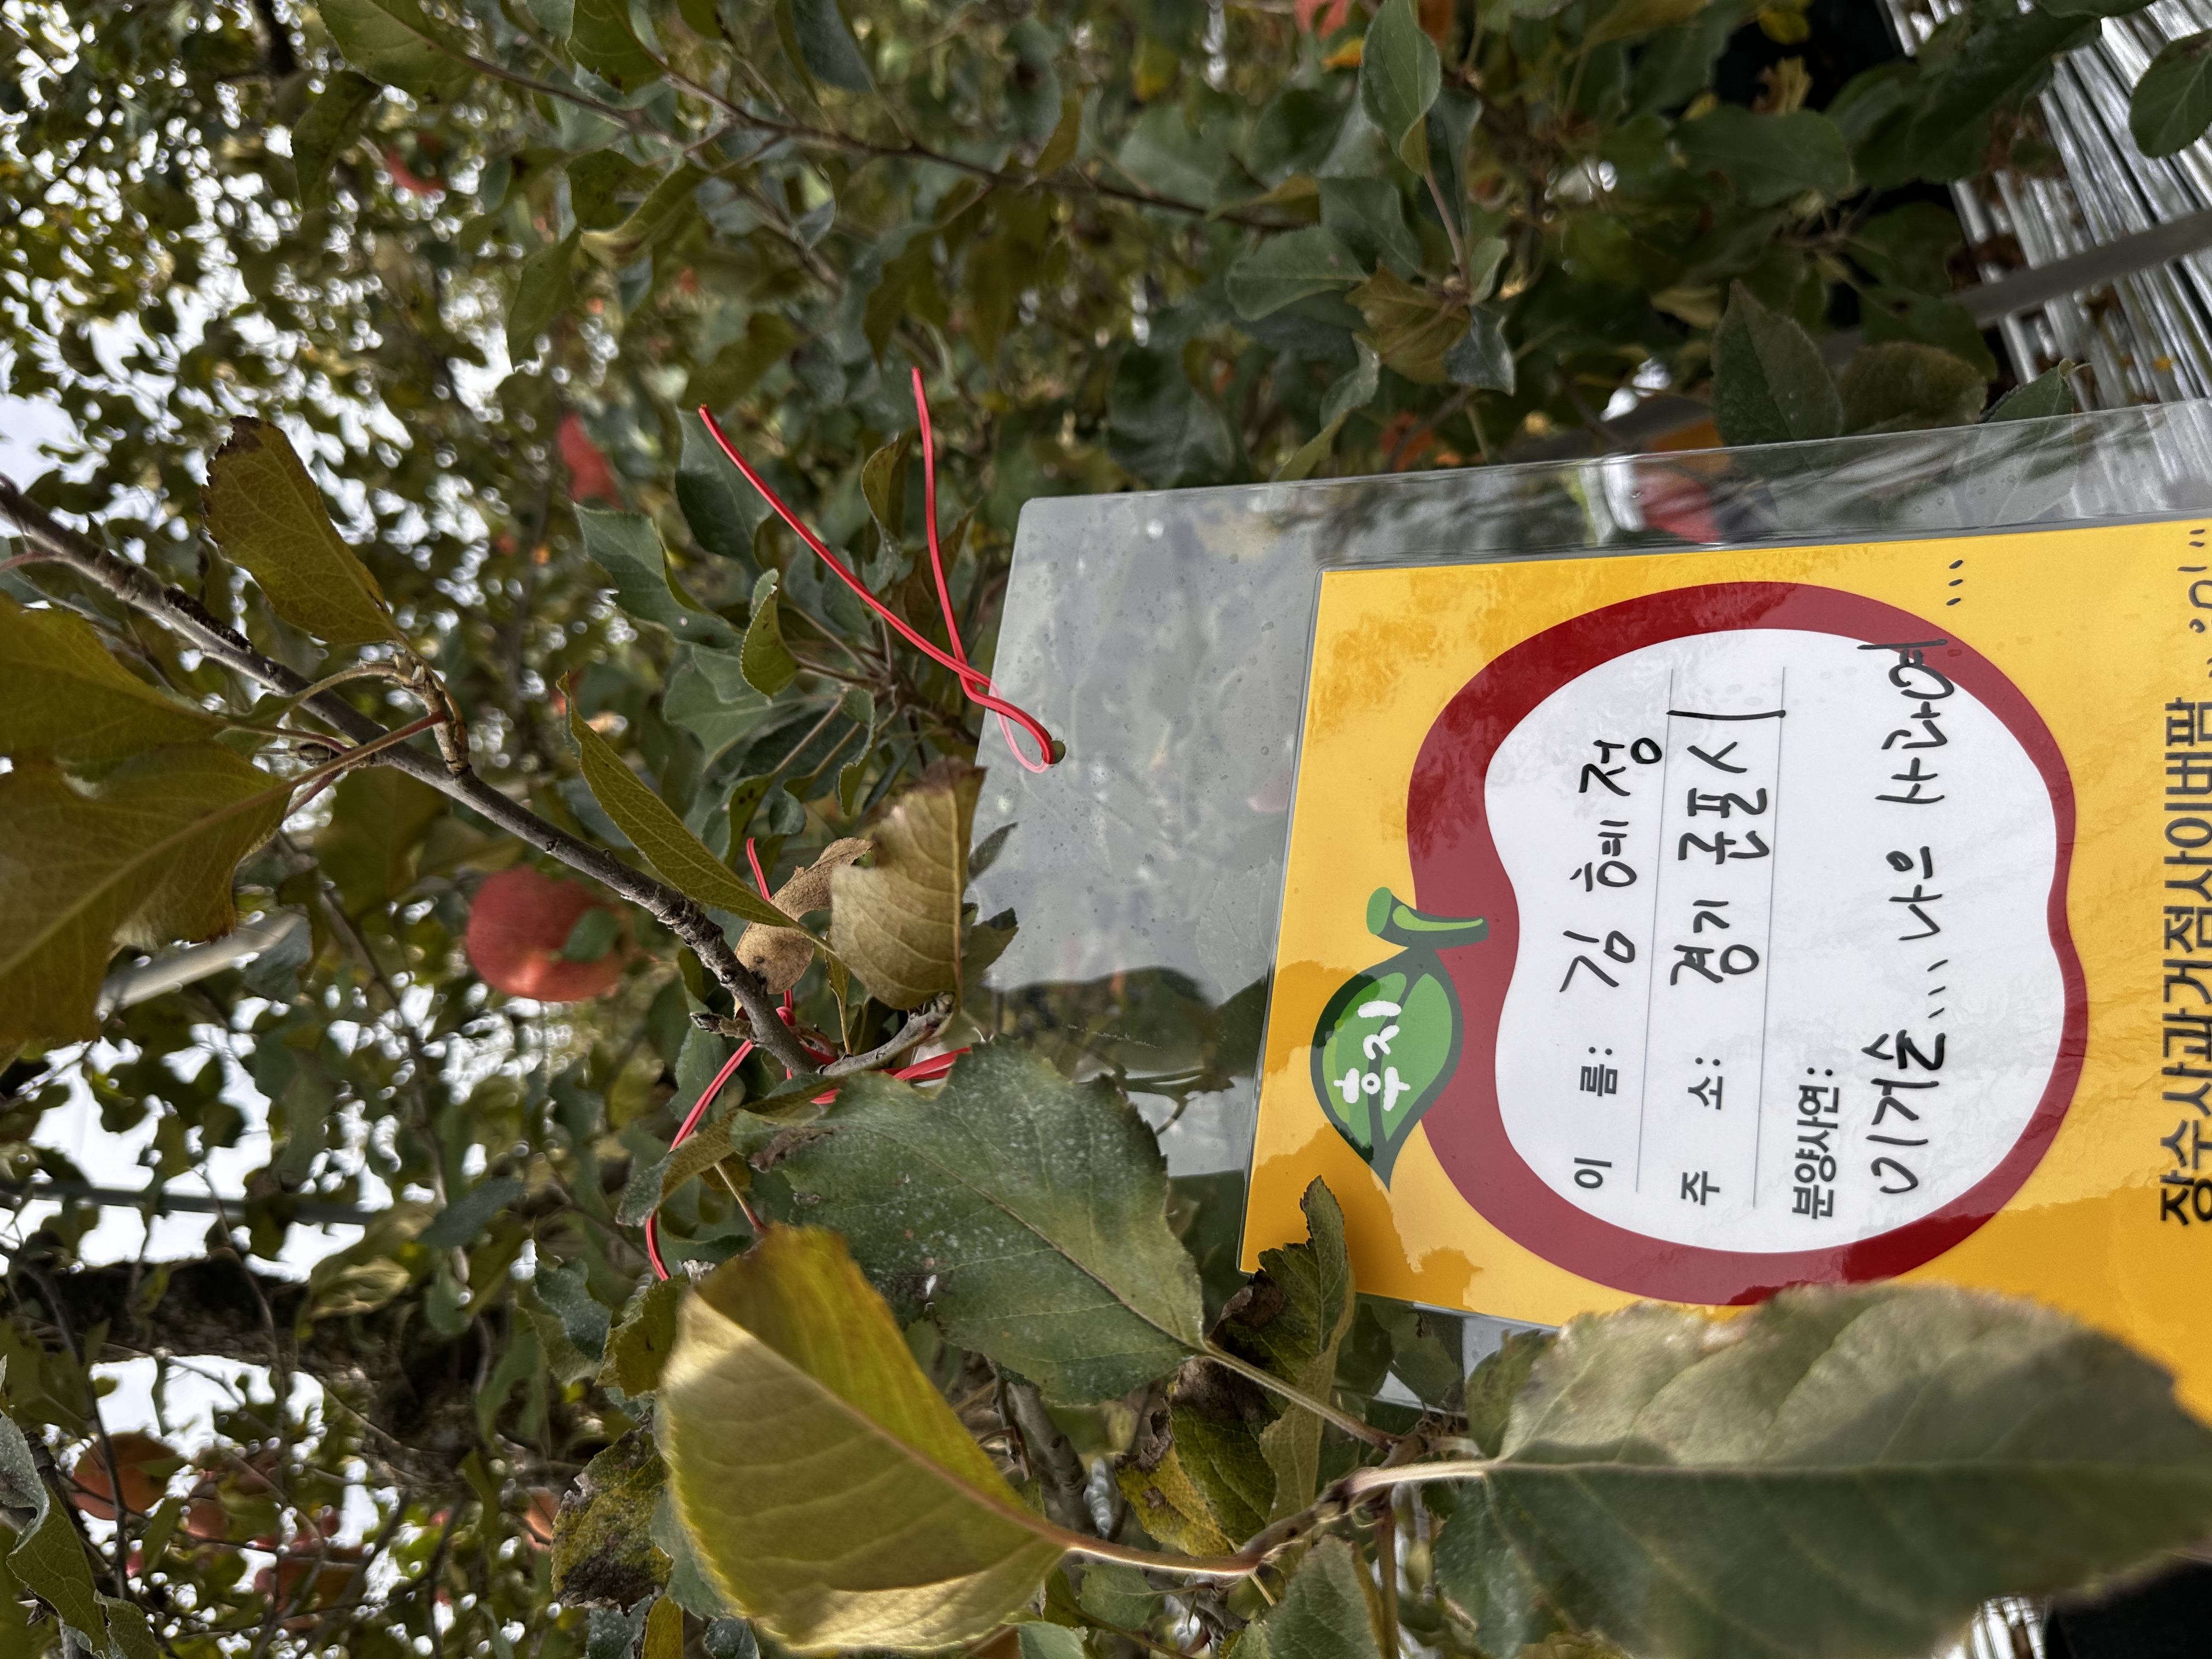 후지
이 름: 김혜정
주 소: 경기 군포시
분양사연:
이거슨... 나으 사과여...
장수사과거점사이버팜